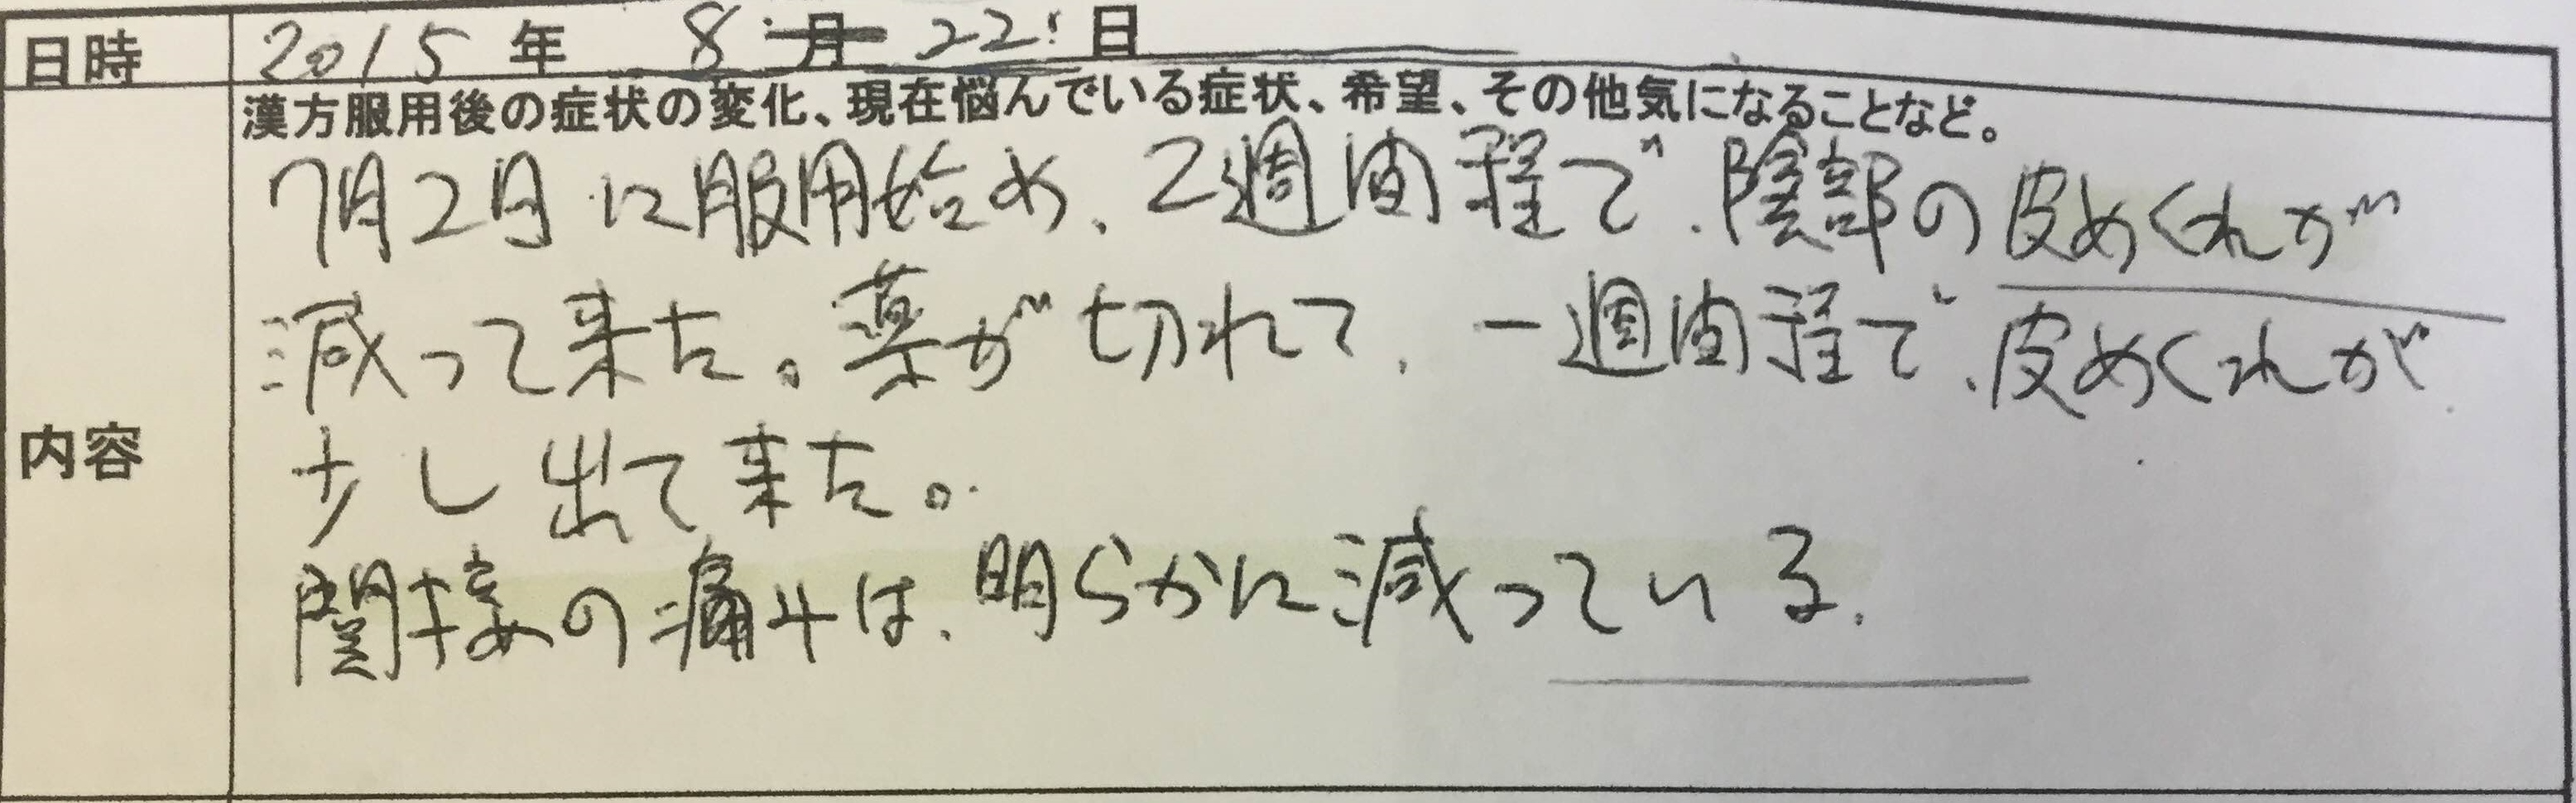 日時 2015年 8月22日
漢方服用後の症状の変化、現在悩んでいる症状、希望、その他気になることなど。
7月2日に服用始め、2週間程で、陰部の皮めくれが
減って来た。薬が切れて、一週間程で、皮めくれが
内容
少し出て来た。
関接の痛みは、明らかに減っている。